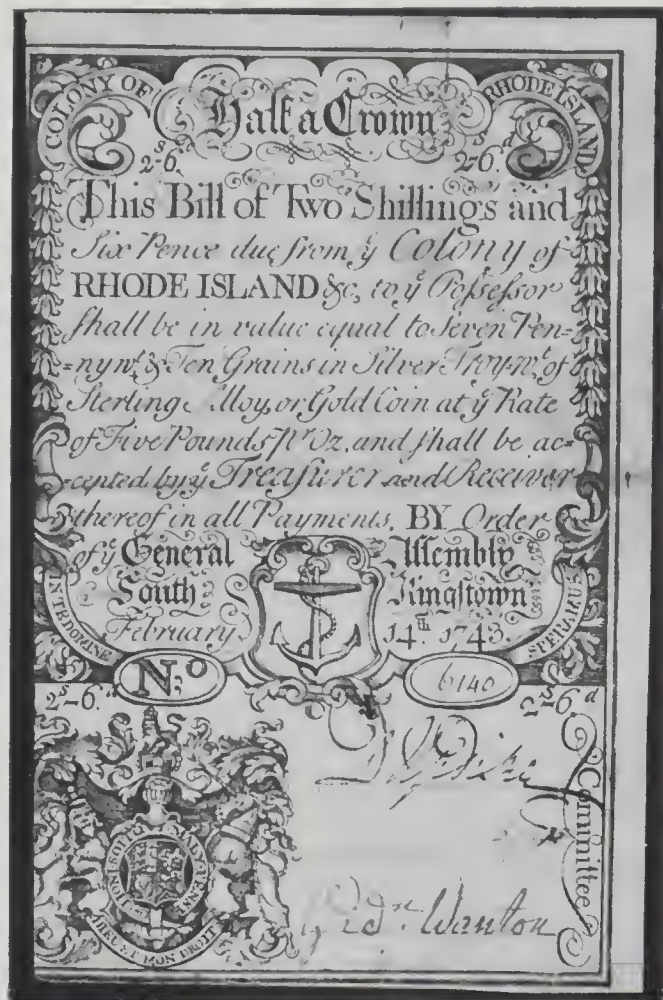 COLONY OF RHODE ISLAND
Half a Crown
2ˢ-6ᵈ 2ˢ-6ᵈ
This Bill of Two Shillings and
Six Pence due from yͤ Colony of
RHODE ISLAND &c, to yͤ Poſseſsor
ſhall be in value equal to Seven Pen=
=nywᵗ & Ten Grains in Silver Troy-wᵗ of
Sterling Alloy, or Gold Coin at yͤ Rate
of Five Pounds Pʳ Oz. and ſhall be ac=
=cepted by yͤ Treaſurer and Receiver
thereof in all Payments. BY Order
of yͤ General Aſſembly
South Kingstown
February 14ᵗʰ 1743.
IN TE DOMINE SPERAMUS
Nͦ 6140
2ˢ-6ᵈ 2ˢ-6ᵈ
Committee
HONI SOIT QUI MAL Y PENSE
DIEU ET MON DROIT
Wanton